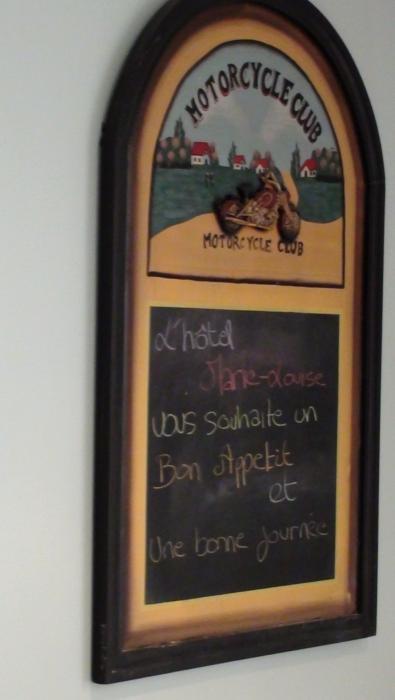 MOTORCYCLE CLUB
MOTORCYCLE CLUB
L'hôtel
Marie-Louise
vous souhaite un
Bon Appetit
et
Une bonne journée